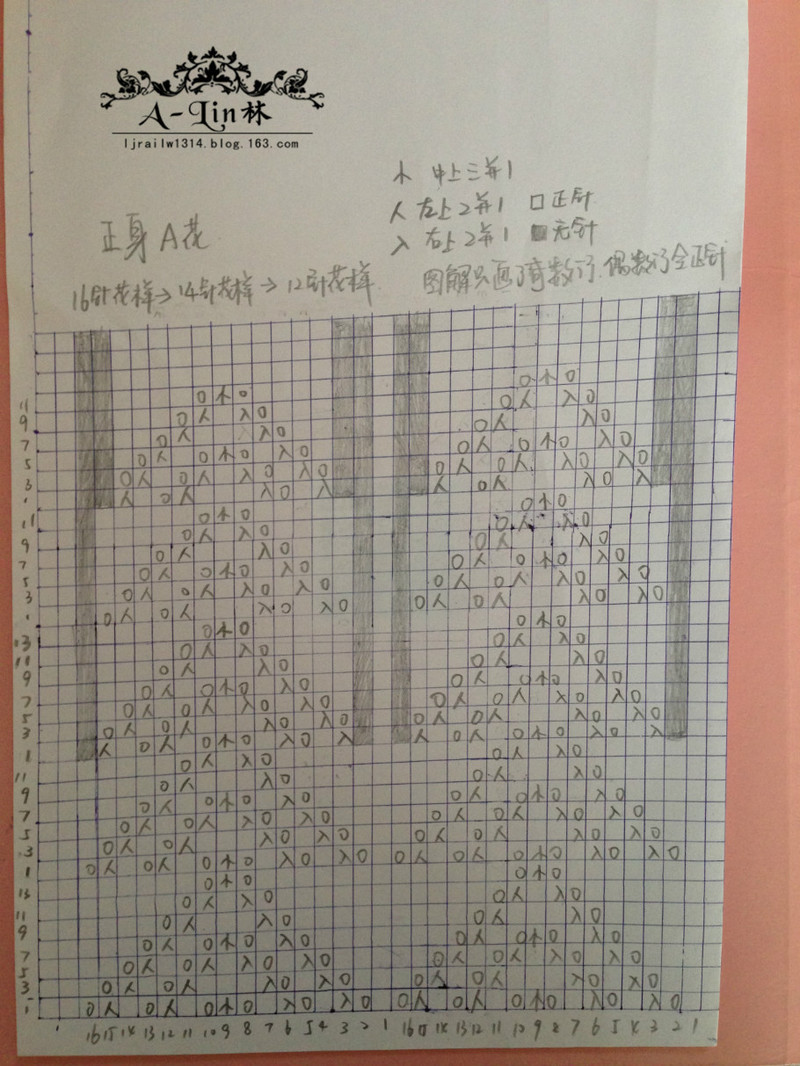 A-Lin林
ljrailw1314.blog.163.com
木 中上三并1
正身A花
人 左上2并1 口 正针
入 右上2并1 无针
16针花样→14针花样→12针花样
图解只画了奇数行.偶数行全正针
11
9
7
5
3
1
11
9
7
5
3
1
13
11
9
7
5
3
1
11
9
7
5
3
1
13
11
9
7
5
3
1
16 15 14 13 12 11 10 9 8 7 6 5 4 3 2 1 16 15 14 13 12 11 10 9 8 7 6 5 4 3 2 1